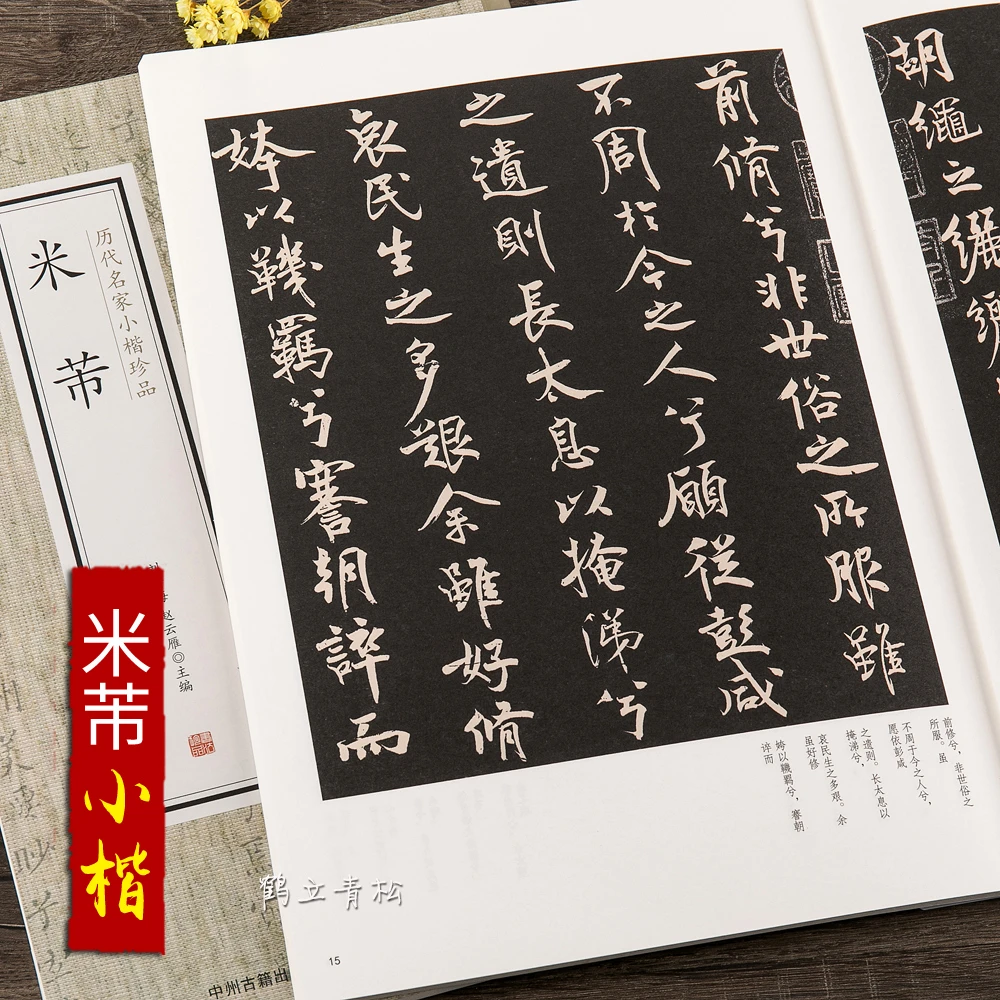 胡繩之纚纚
前脩兮非世俗之所服雖
不周於今之人兮願從彭咸
之遺則長太息以掩涕兮
哀民生之多艱余雖好脩
姱以鞿羈兮謇朝誶而
前修兮，非世俗之
所服。虽
不周于今之人兮，
愿依彭咸
之遗则。长太息以
掩涕兮，
哀民生之多艰。余
虽好修
姱以鞿羁兮，謇朝
谇而
15
历代名家小楷珍品
米芾
赵云雁◎主编
中州古籍出
米芾小楷
鹤立青松